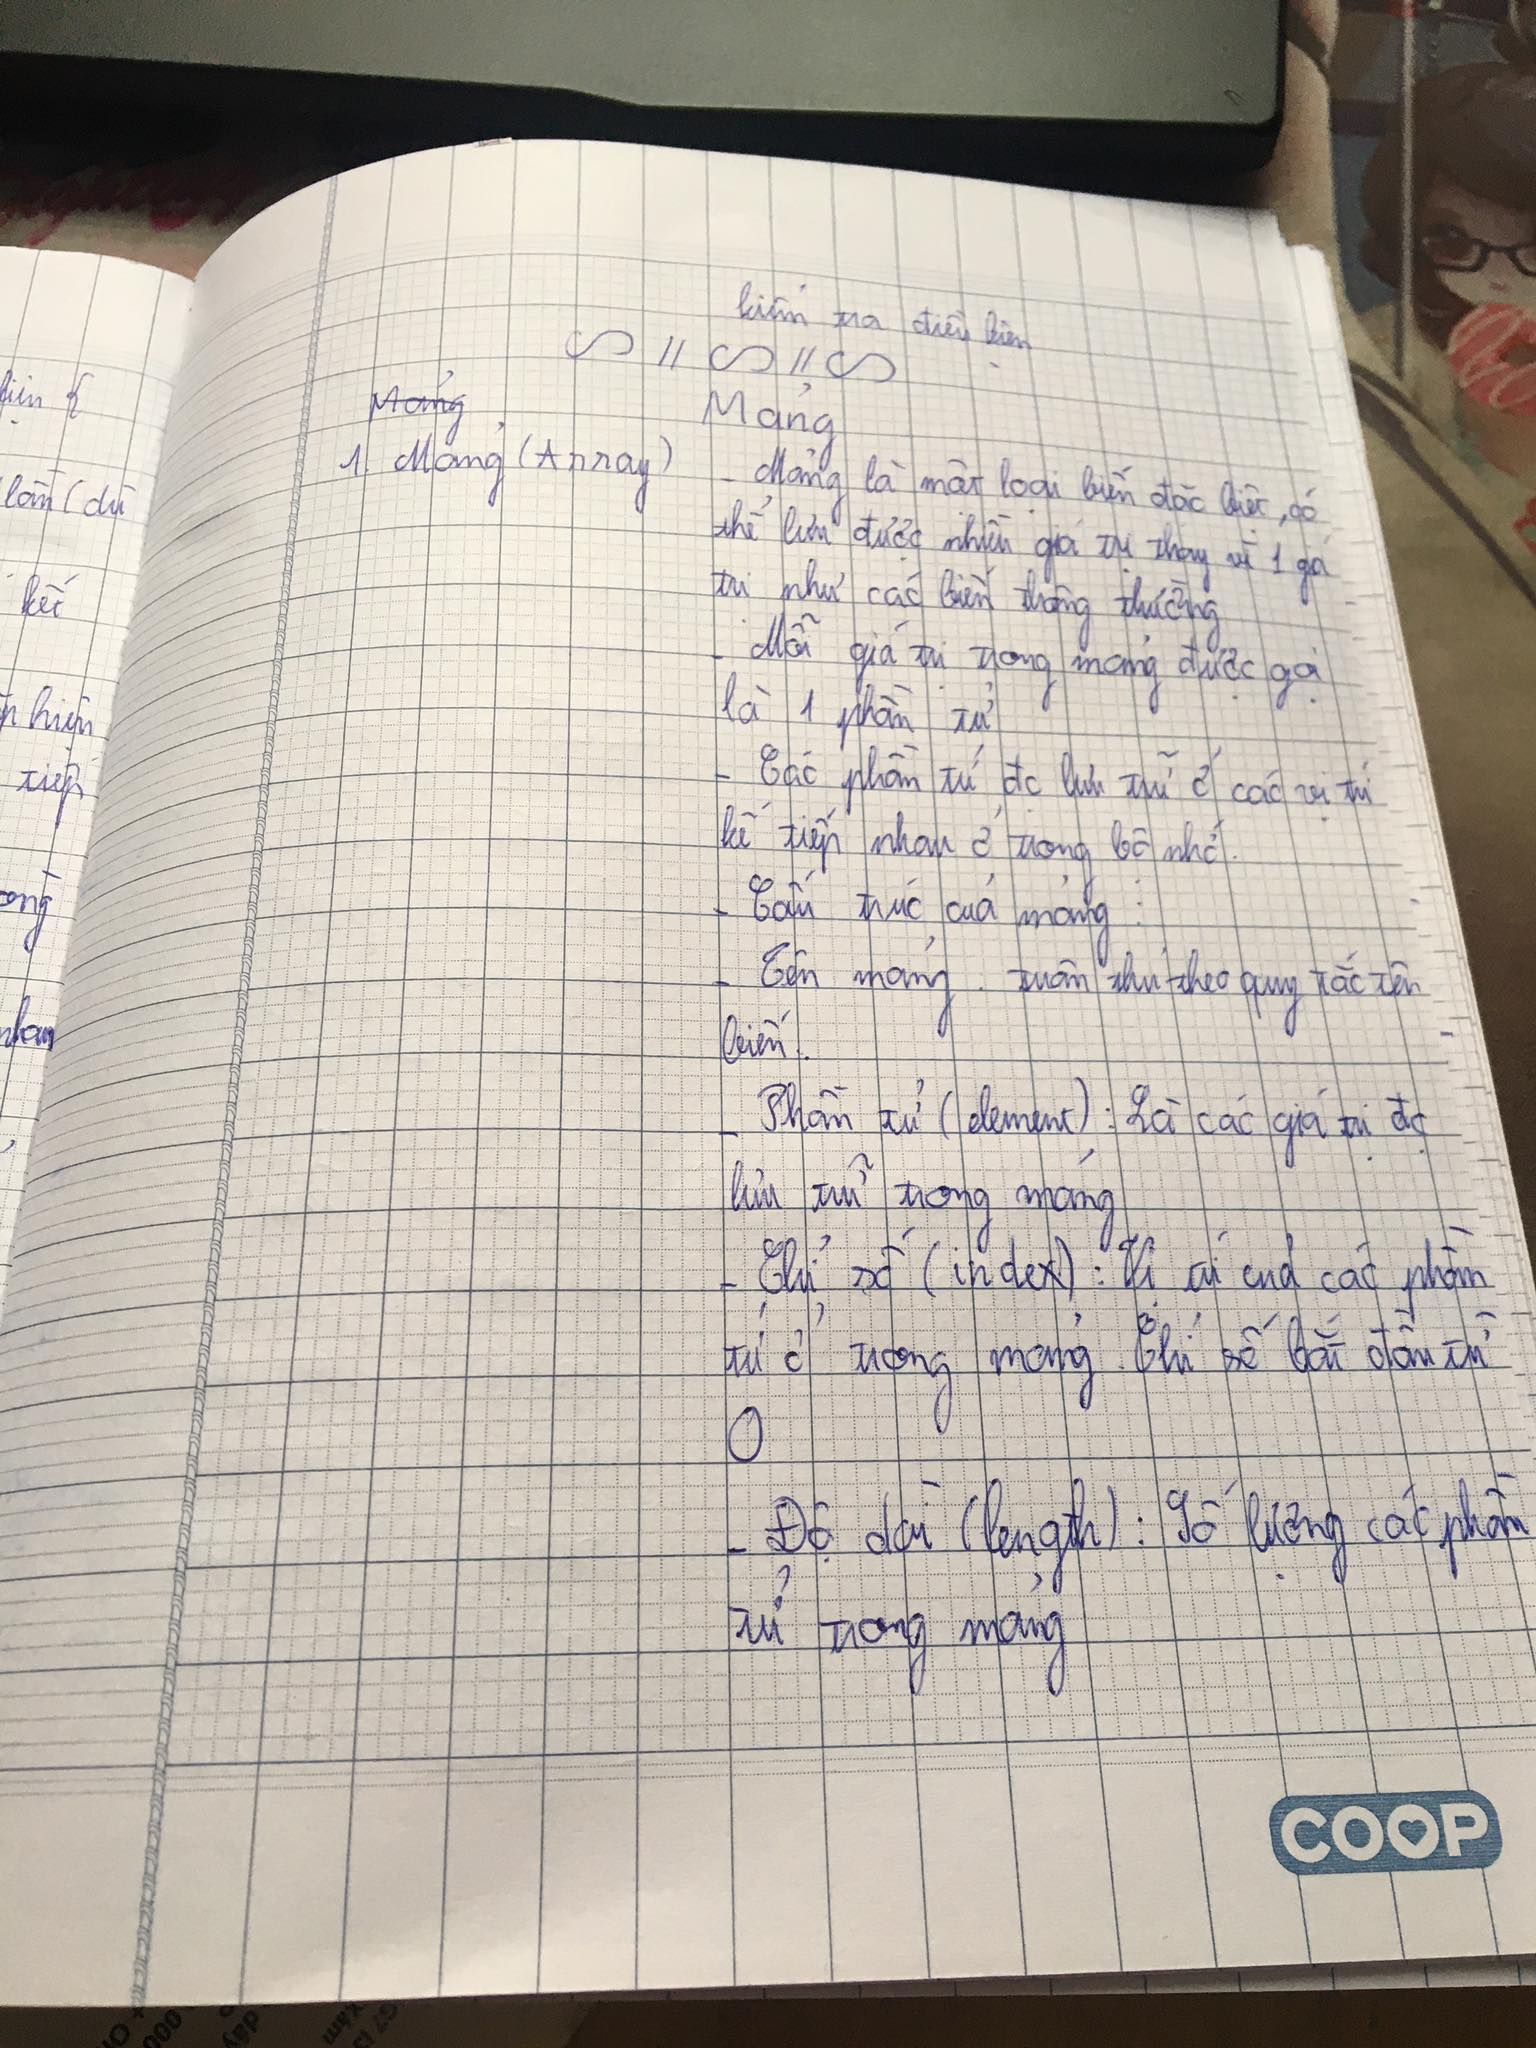 kiểm tra điều kiện
Mảng
Mảng
1. Mảng (Array)
- Mảng là một loại biến đặc biệt, có
thể lưu được nhiều giá trị thay vì 1 gá
tri như các biến thông thường
- Mỗi giá trị trong mảng được gọi
là 1 phần tử
- Các phần tử đc lưu trữ ở các vị trí
kế tiếp nhau ở trong bộ nhớ.
- Cấu trúc của mảng :
- Tên mảng . tuân thủ theo quy tắc tên
biến.
- Phần tử (element) : Là các giá trị đc
lưu trữ trong mảng
- Chỉ số (index) : Vị trí của các phần
tử ở trong mảng. Chỉ số bắt đầu từ
0
- Độ dài (length) : Số lượng các phần
tử trong mảng
lần (dù
kết
hiện
tiếp
nhau
COOP